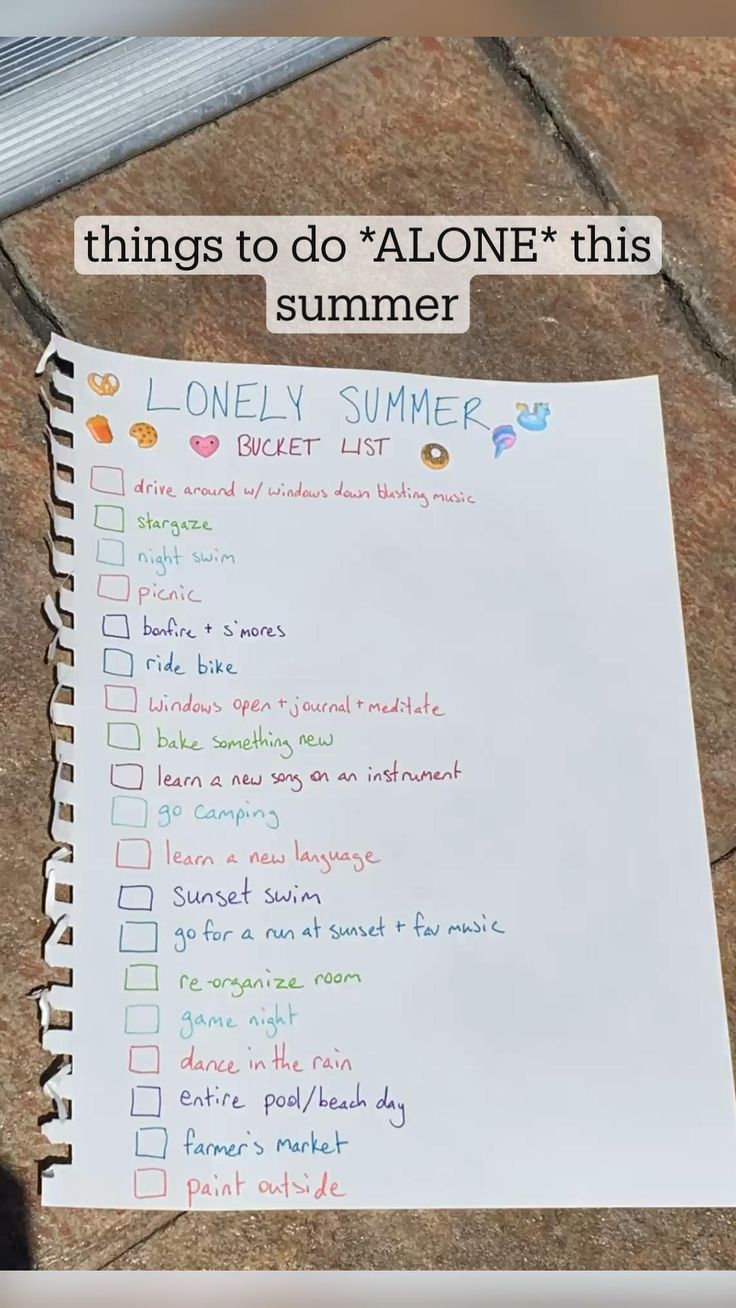 things to do *ALONE* this
summer
LONELY SUMMER
BUCKET LIST
drive around w/ windows down blasting music
stargaze
night swim
picnic
bonfire + s'mores
ride bike
windows open + journal + meditate
bake something new
learn a new song on an instrument
go camping
learn a new language
sunset swim
go for a run at sunset + fav music
re-organize room
game night
dance in the rain
entire pool/beach day
farmer's market
paint outside